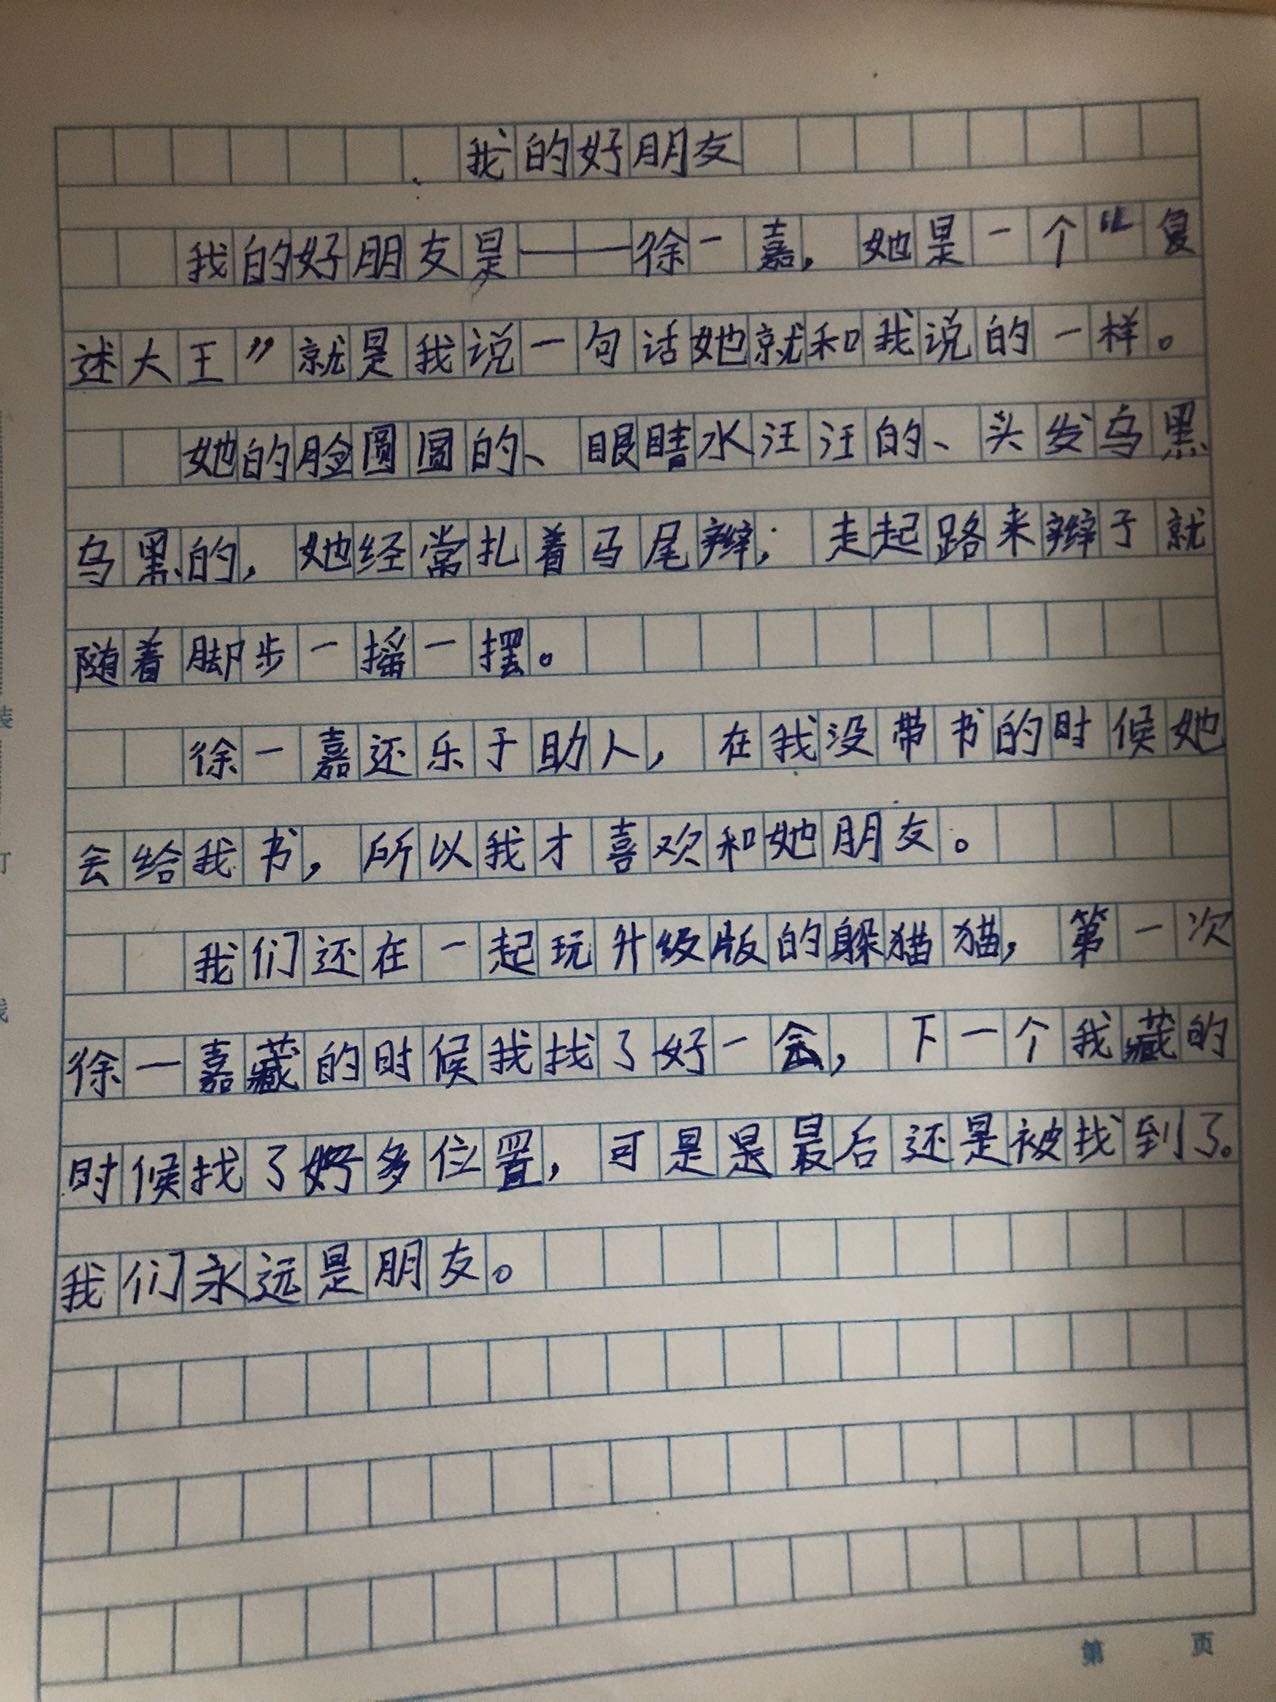 我的好朋友
我的好朋友是——徐一嘉，她是一个“复
述大王”就是我说一句话她就和我说的一样。
她的脸圆圆的、眼睛水汪汪的、头发乌黑
乌黑的，她经常扎着马尾辫；走起路来辫于就
随着脚步一摇一摆。
徐一嘉还乐于助人，在我没带书的时候她
会给我书，所以我才喜欢和她朋友。
我们还在一起玩升级版的躲猫猫，第一次
徐一嘉藏的时候我找了好一会，下一个我藏的
时候找了好多位置，可是是最后还是被找到了。
我们永远是朋友。
第 页